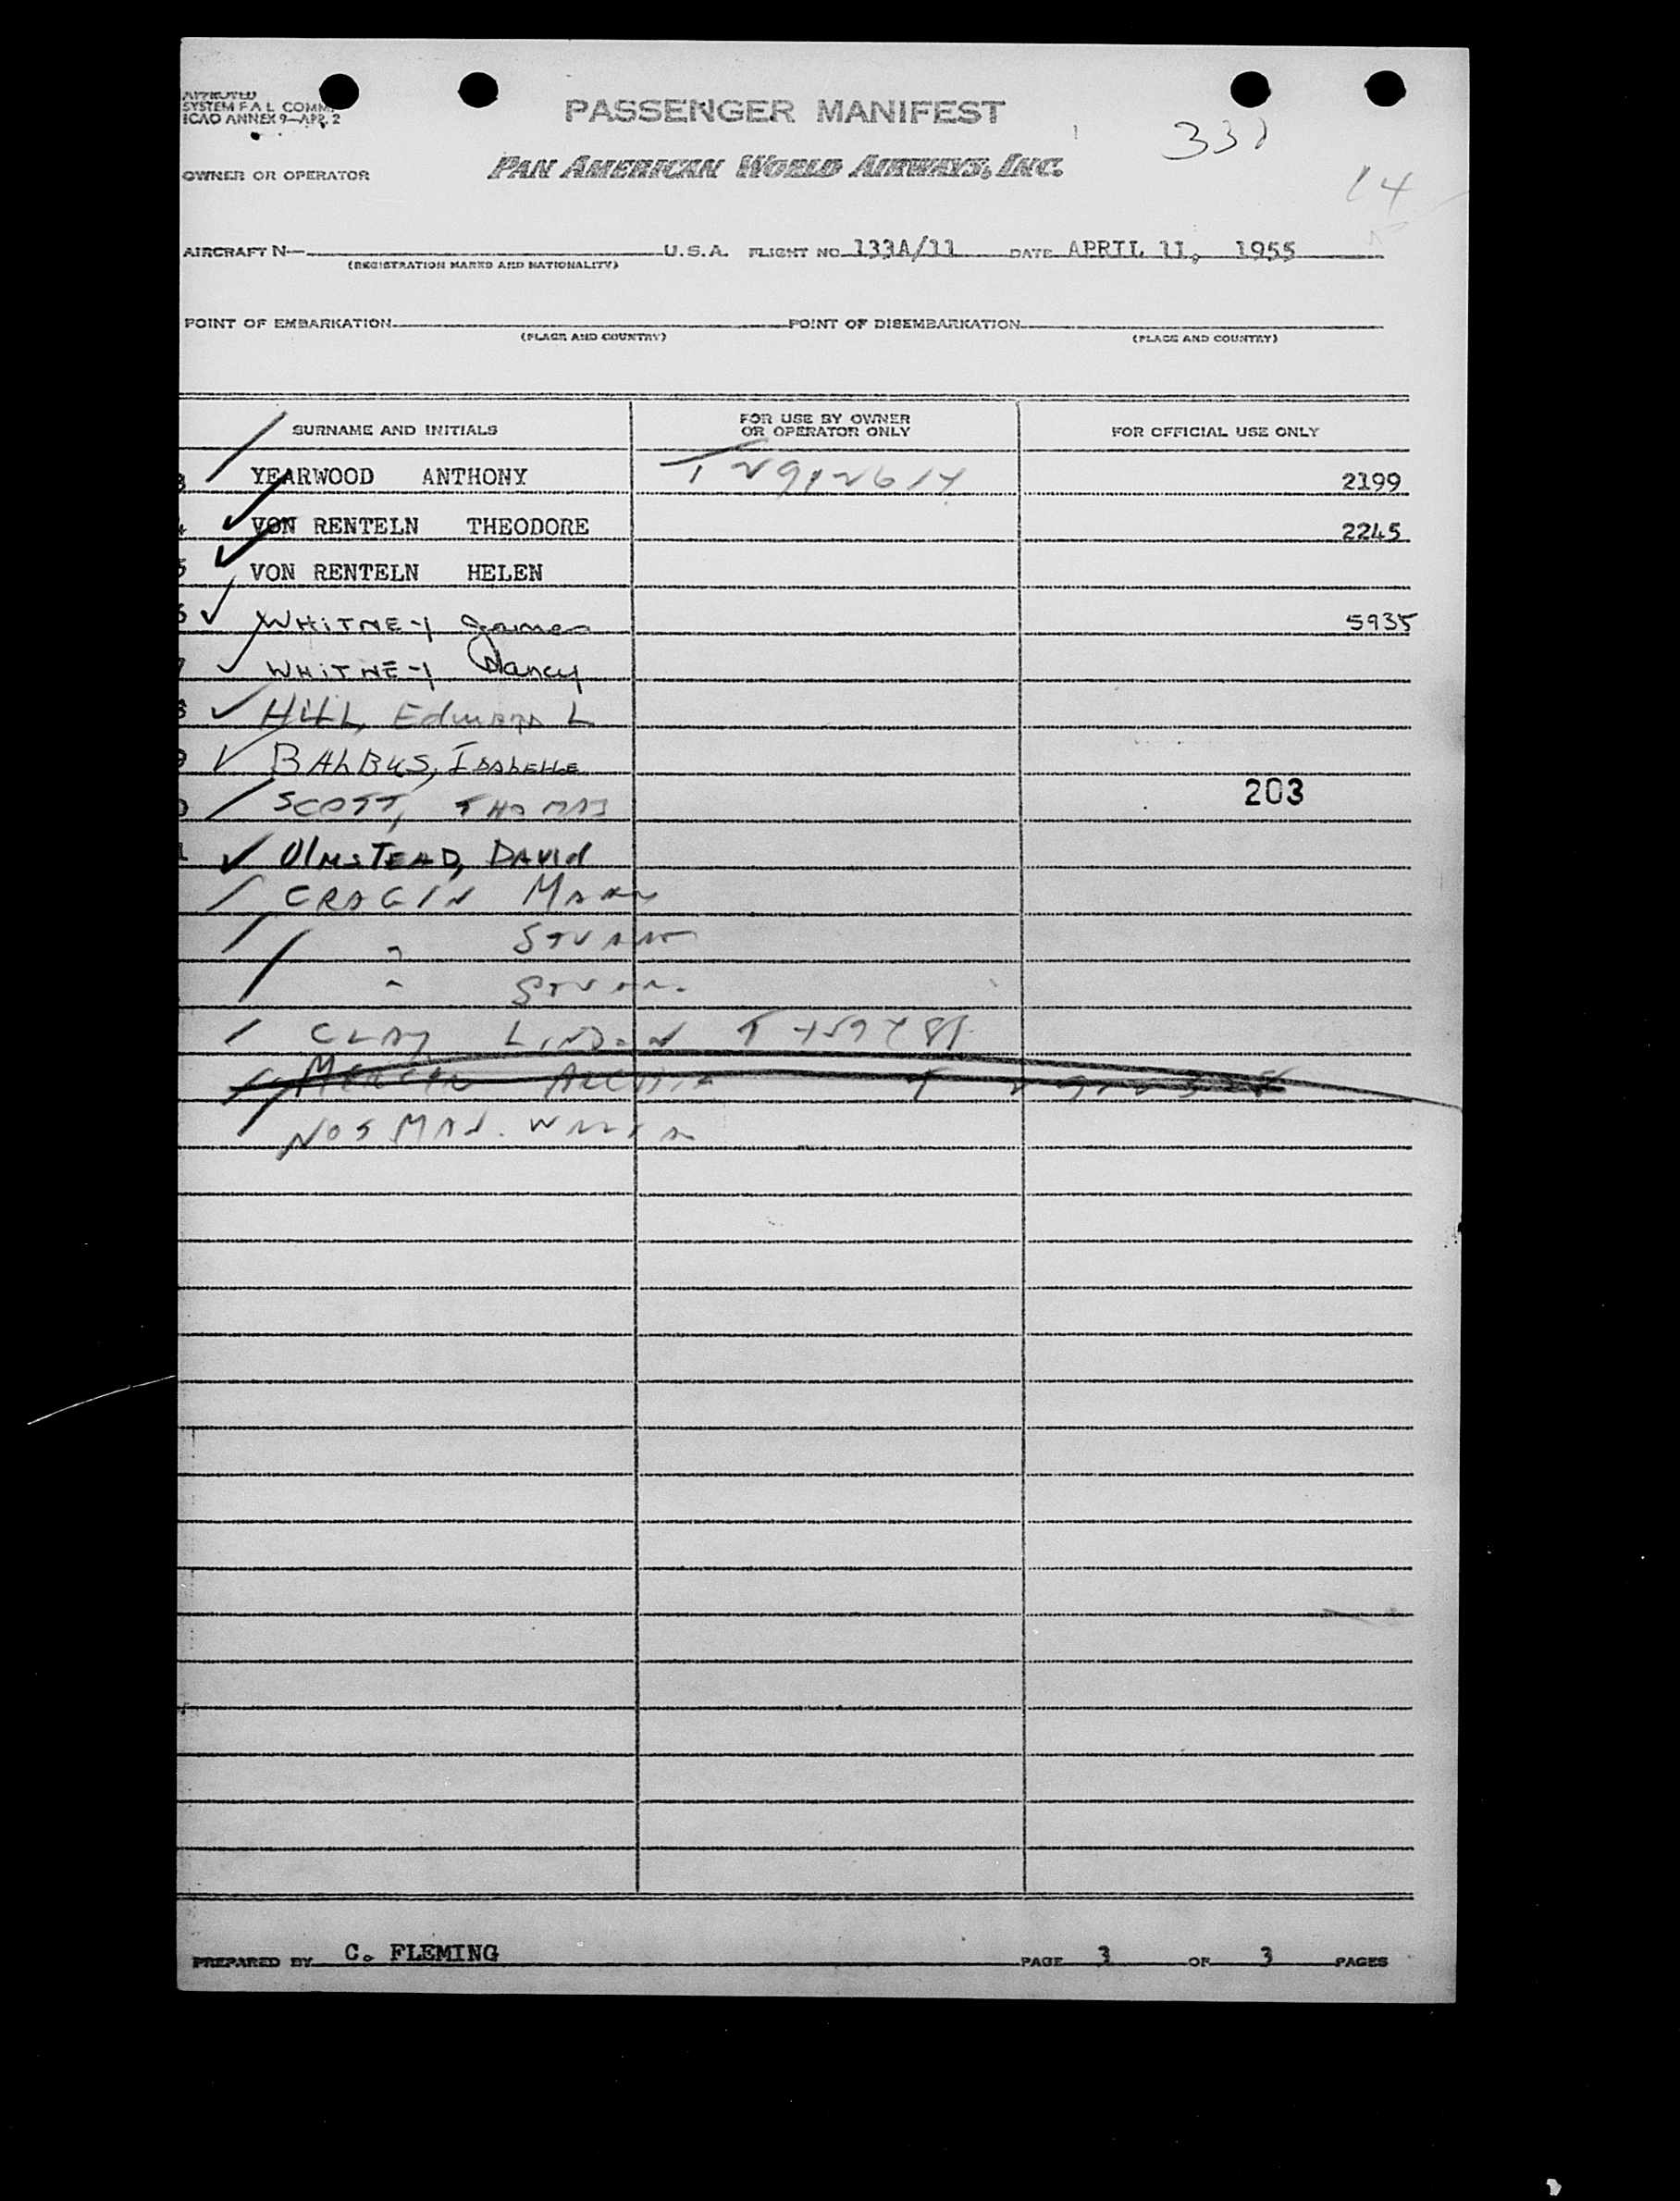 APPROVED
SYSTEM F A L COMM.
ICAO ANNEX 9—APP. 2
PASSENGER MANIFEST
331
PAN AMERICAN WORLD AIRWAYS, INC.
OWNER OR OPERATOR
14
AIRCRAFT N— U.S.A. FLIGHT NO 133A/11 DATE APRIL 11, 1955
(REGISTRATION MARKS AND NATIONALITY)
POINT OF EMBARKATION POINT OF DISEMBARKATION
(PLACE AND COUNTRY) (PLACE AND COUNTRY)
SURNAME AND INITIALS FOR USE BY OWNER OR OPERATOR ONLY FOR OFFICIAL USE ONLY
3 YEARWOOD ANTHONY T 2912614 2199
4 VON RENTELN THEODORE 2245
5 VON RENTELN HELEN
6 WHITNEY James 5935
7 WHITNEY Nancy
8 HILL, Edward L
9 BALBUS, ISABELLE
203
0 SCOTT, THOMAS
1 OLMSTEAD, DAVID
CRAGIN MARK
" STUART
"
CLAY LINDEN T
NOSMAN. WALTER
PREPARED BY C. FLEMING PAGE 3 OF 3 PAGES